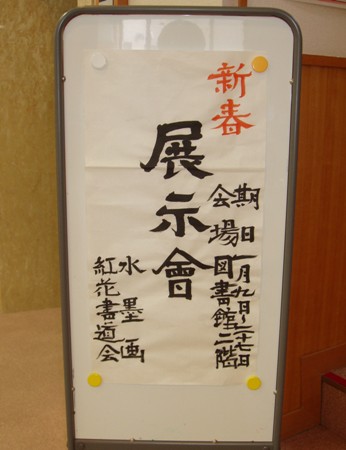 新春
展示會
期日 一月九日～二十七日
会場 図書館二階
水墨画
紅花書道会